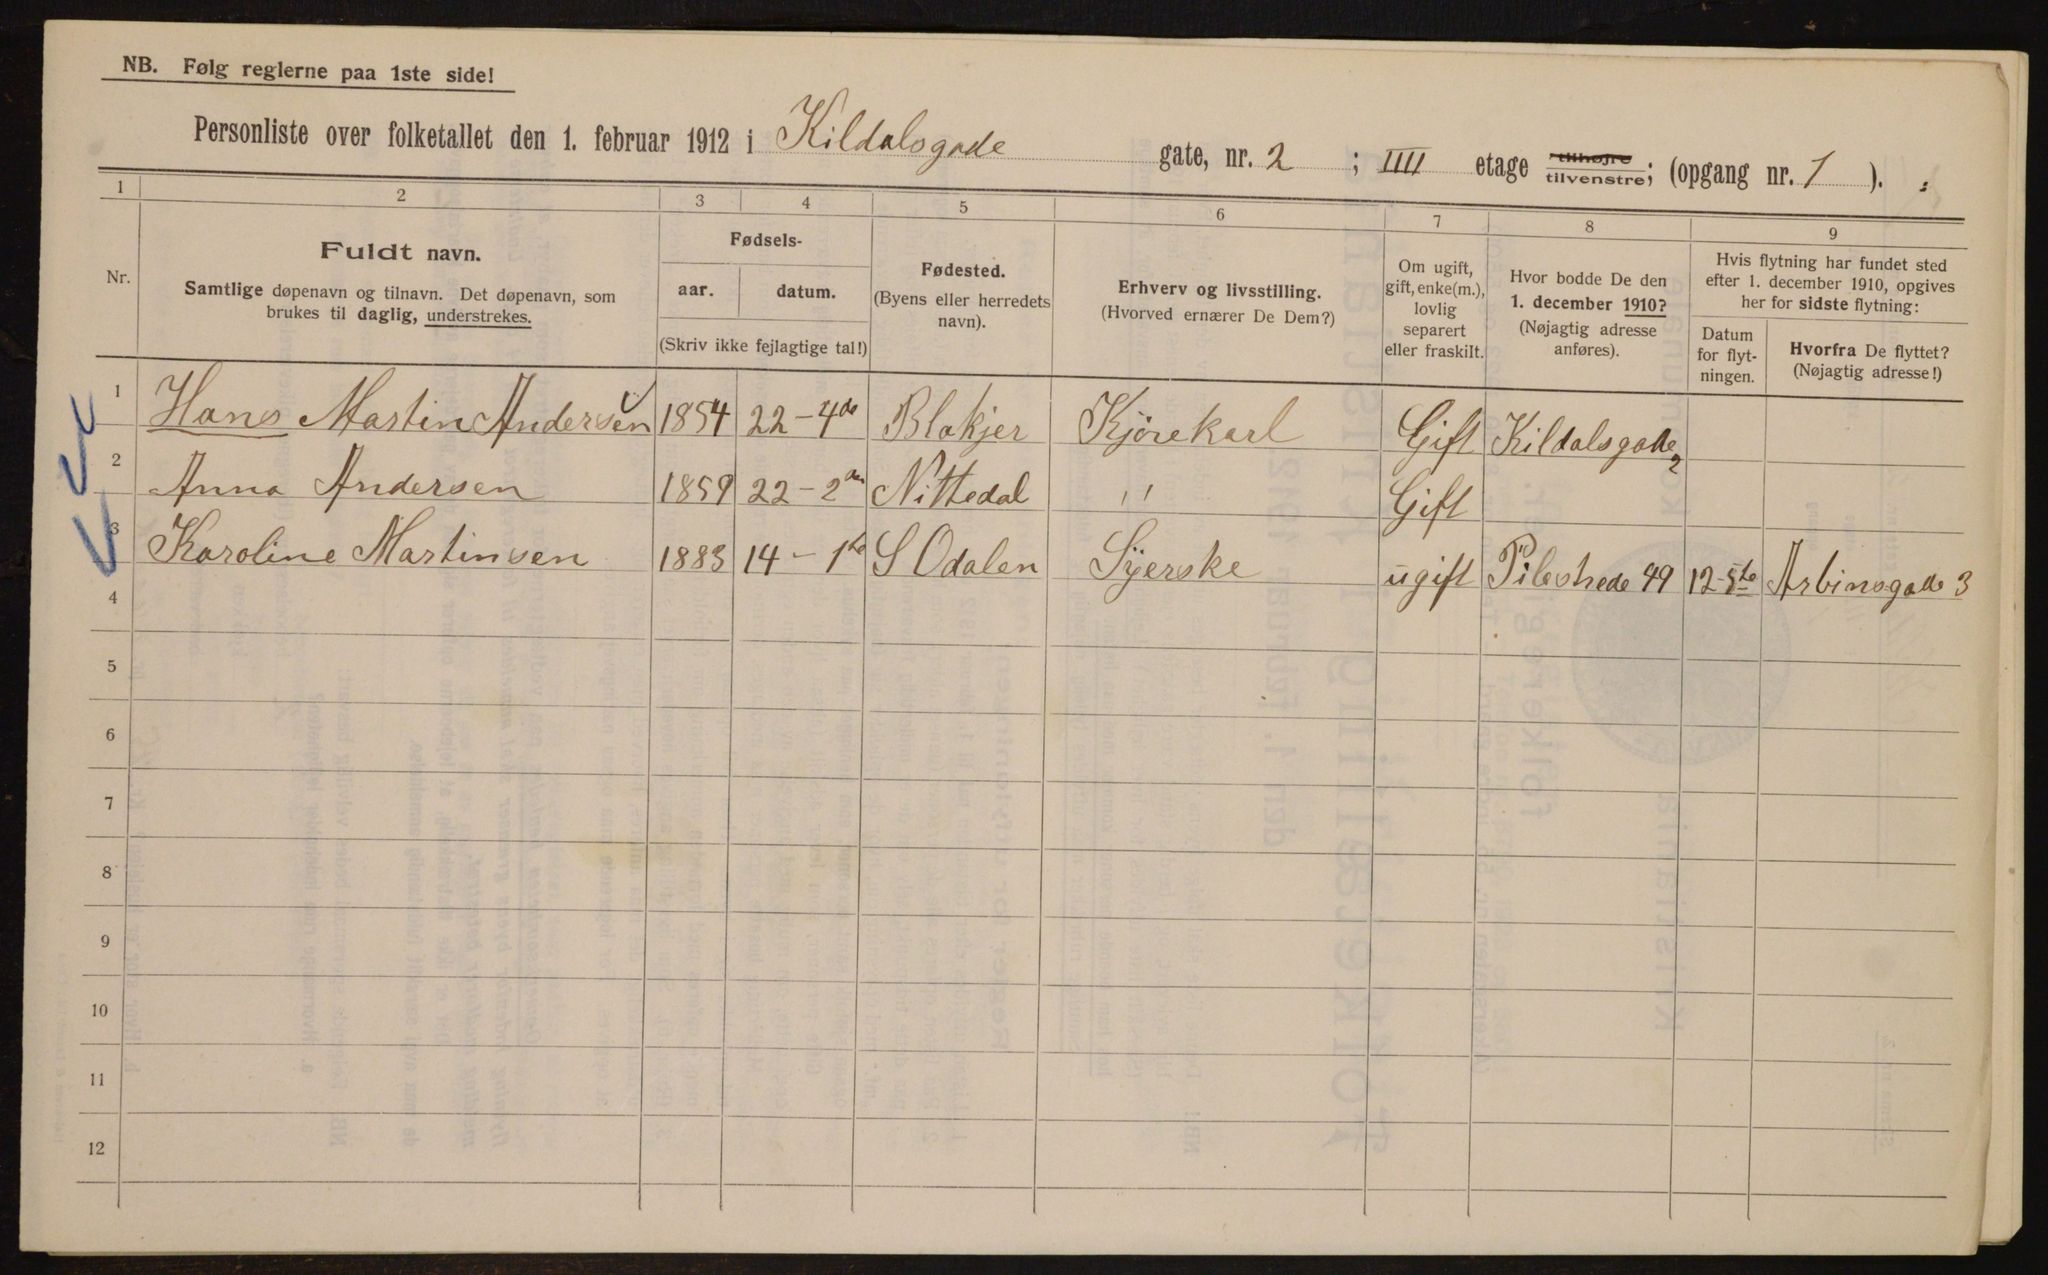 NB. Følg reglerne paa 1ste side!
Personliste over folketallet den 1. februar 1912 i Kildalsgade gate, nr. 2 ; IIII etage tilhøjre tilvenstre; (opgang nr. 1 ).
1 2 3 4 5 6 7 8 9
Nr.
Fuldt navn.
Samtlige døpenavn og tilnavn. Det døpenavn, som
brukes til daglig, understrekes.
Fødsels-
aar. datum.
(Skriv ikke fejlagtige tal!)
Fødested.
(Byens eller herredets
navn).
Erhverv og livsstilling.
(Hvorved ernærer De Dem?)
Om ugift,
gift, enke(m.),
lovlig
separert
eller fraskilt.
Hvor bodde De den
1. december 1910?
(Nøjagtig adresse
anføres).
Hvis flytning har fundet sted
efter 1. december 1910, opgives
her for sidste flytning:
Datum
for flyt-
ningen.
Hvorfra De flyttet?
(Nøjagtig adresse!)
1 Hans Martin Andersen 1854 22-4de Blakjer Kjørekarl Gift Kildalsgade 2
2 Anna Andersen 1859 22-2den Nittedal " Gift
3 Karoline Martinsen 1883 14-1ste S Odalen Syerske ugift Pilestrede 49 12-5te Arbinsgade 3
4
5
6
7
8
9
10
11
12